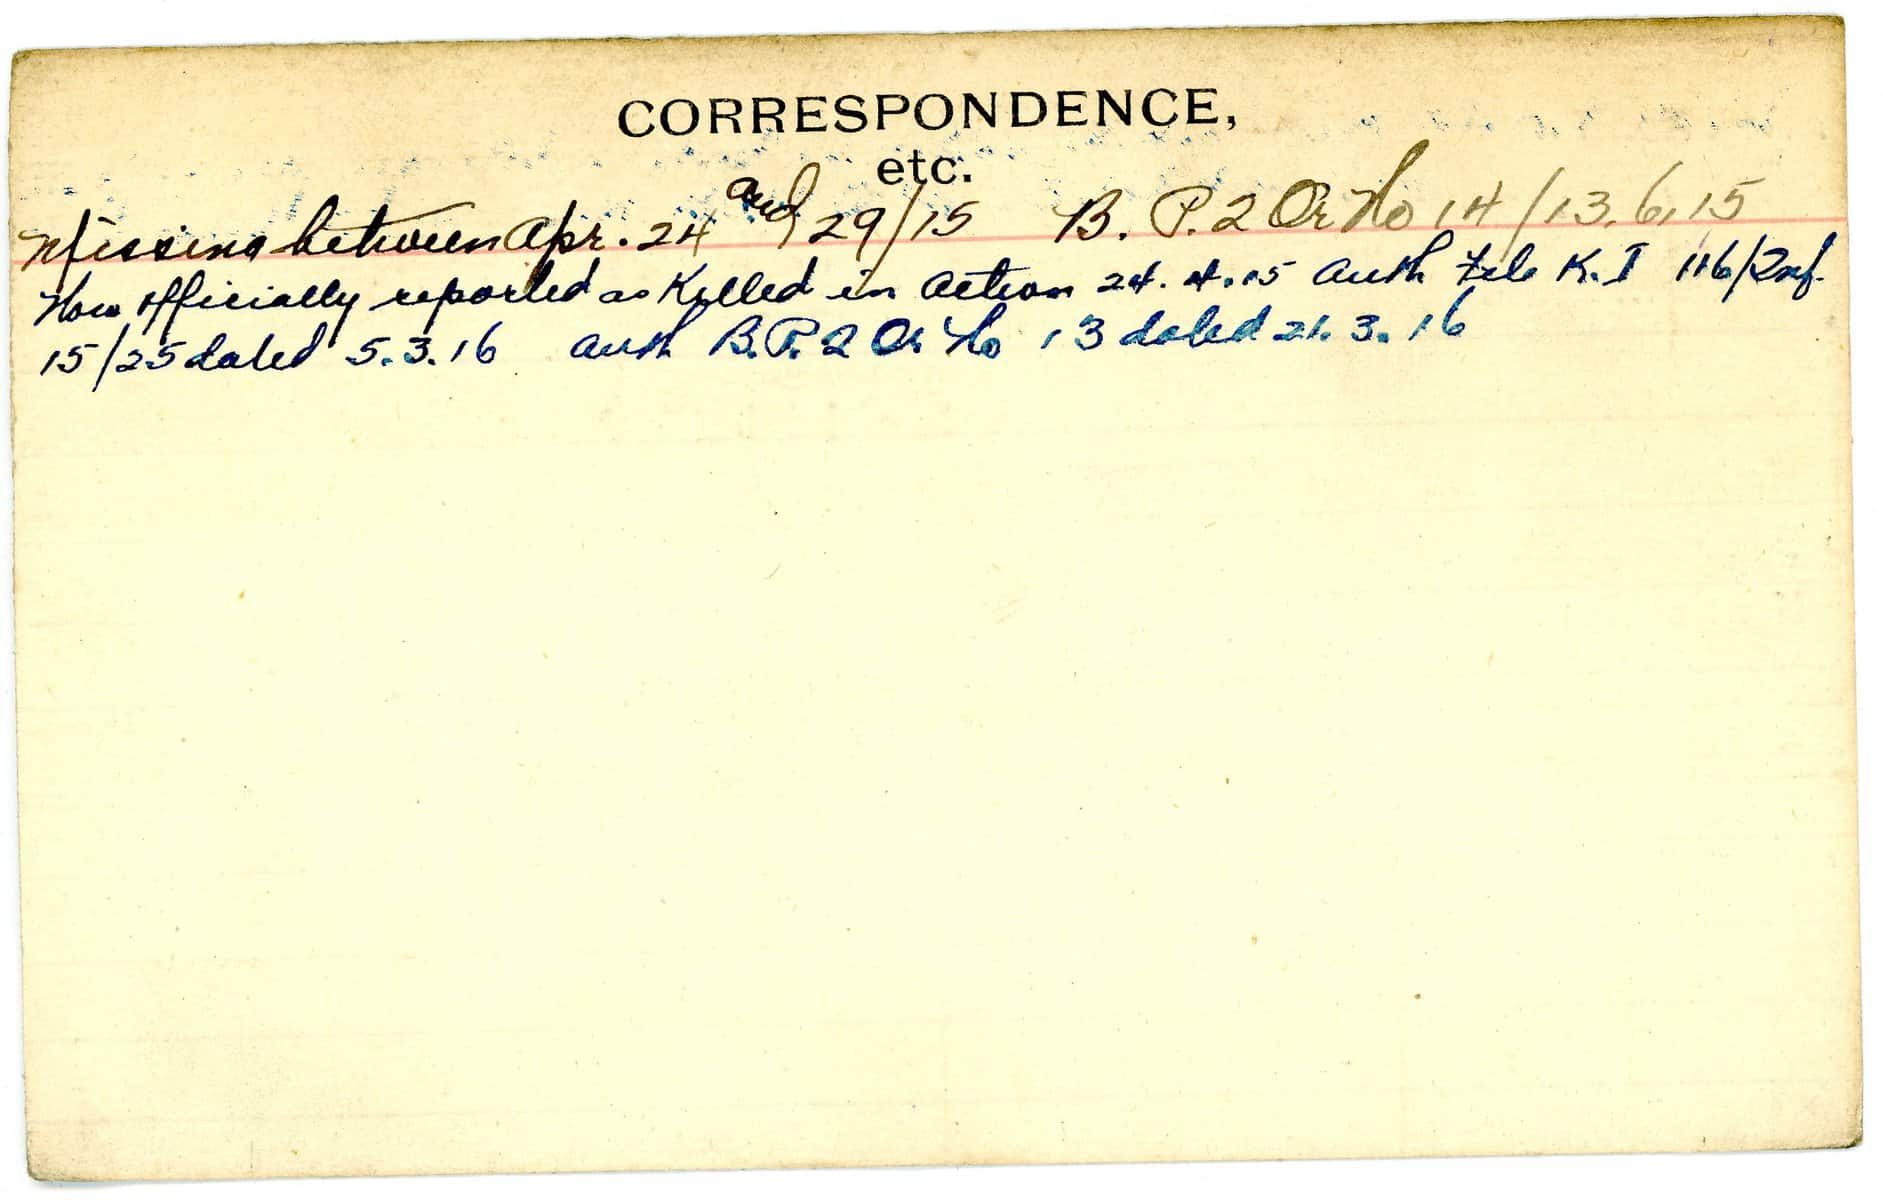 CORRESPONDENCE,
etc.
Missing between Apr. 24 and 29/15 B. P. 2 Or No 14/13.6.15
Now officially reported as Killed in Action 24.4.15 Auth File K.I 116/Inf.
15/25 dated 5.3.16 Auth B.P. 2 Or No 13 dated 21.3.16